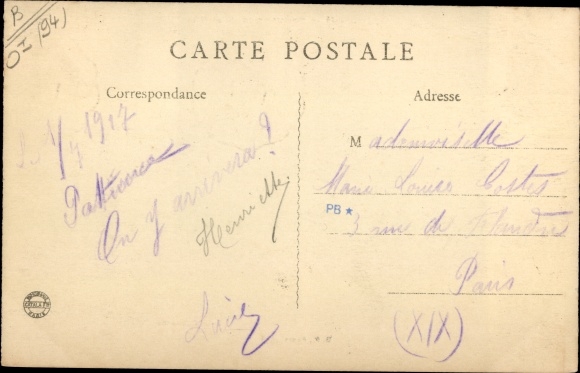 B
OI (94)
CARTE POSTALE
Correspondance
Adresse
1917
Patience
On y arrivera !
Henriette
Lucie
Mademoiselle
Marie Louise Costes
PB ★
3 rue de Flandre
Paris
(XIX)